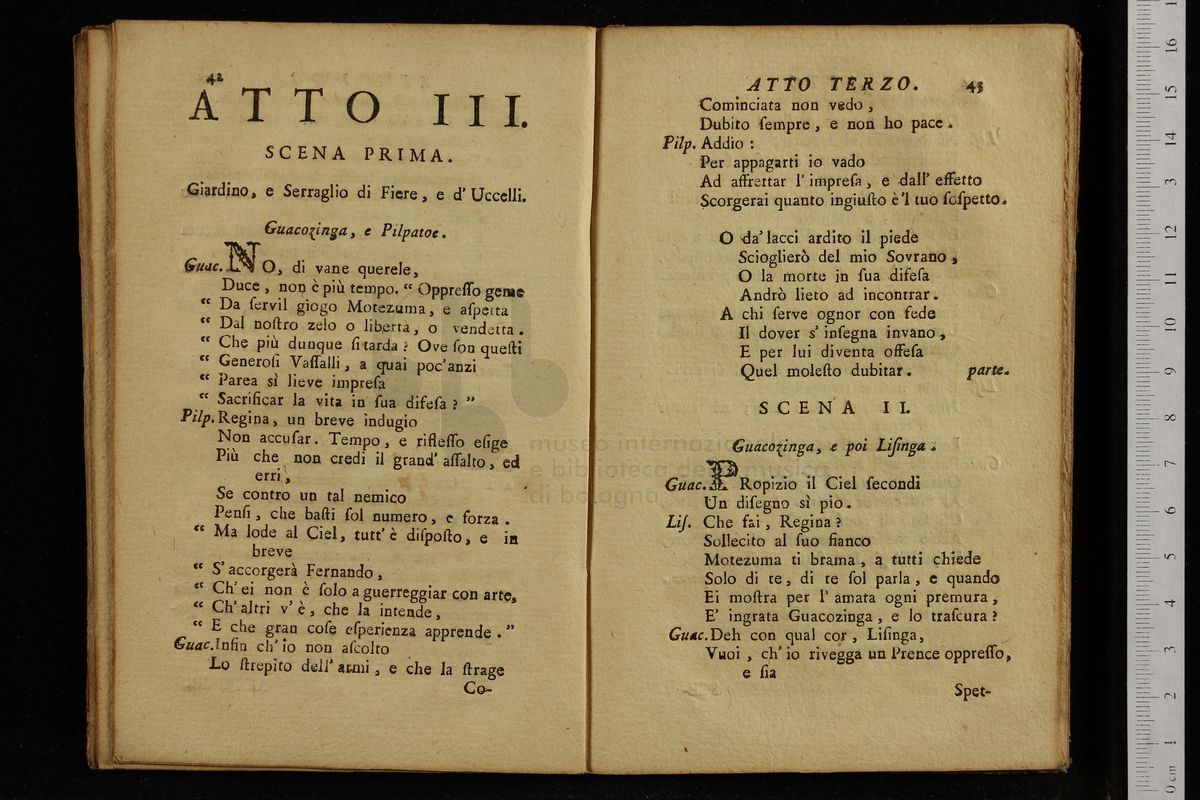 42
ATTO III.
SCENA PRIMA.
Giardino, e Serraglio di Fiere, e d' Uccelli.
Guacozinga, e Pilpatoe.
Guac. NO, di vane querele,
Duce, non è più tempo. “ Oppreſſo geme
“ Da ſervil giogo Motezuma, e aſpetta
“ Dal noſtro zelo o libertà, o vendetta.
“ Che più dunque ſi tarda? Ove ſon queſti
“ Generoſi Vaſſalli, a quai poc'anzi
“ Parea sì lieve impreſa
“ Sacrificar la vita in ſua difeſa? ”
Pilp. Regina, un breve indugio
Non accuſar. Tempo, e rifleſſo eſige
Più che non credi il grand' aſſalto, ed
erri,
Se contro un tal nemico
Penſi, che baſti ſol numero, e forza.
“ Ma lode al Ciel, tutt' è diſpoſto, e in
breve
“ S' accorgerà Fernando,
“ Ch' ei non è ſolo a guerreggiar con arte,
“ Ch' altri v' è, che la intende,
“ E che gran coſe eſperienza apprende. ”
Guac. Infin ch' io non aſcolto
Lo ſtrepito dell' armi, e che la ſtrage
Co-
ATTO TERZO. 43
Cominciata non vedo,
Dubito ſempre, e non ho pace.
Pilp. Addio:
Per appagarti io vado
Ad affrettar l' impreſa, e dall' effetto
Scorgerai quanto ingiuſto è 'l tuo ſoſpetto.
O da' lacci ardito il piede
Scioglierò del mio Sovrano,
O la morte in ſua difeſa
Andrò lieto ad incontrar.
A chi ſerve ognor con fede
Il dover s' inſegna invano,
E per lui diventa offeſa
Quel moleſto dubitar. parte.
SCENA II.
Guacozinga, e poi Liſinga.
Guac. PRopizio il Ciel ſecondi
Un diſegno sì pio.
Liſ. Che fai, Regina?
Sollecito al ſuo fianco
Motezuma ti brama, a tutti chiede
Solo di te, di te ſol parla, e quando
Ei moſtra per l' amata ogni premura,
E' ingrata Guacozinga, e lo traſcura?
Guac. Deh con qual cor, Liſinga,
Vuoi, ch' io rivegga un Prence oppreſſo,
e ſia
Spet-
museo internazionale
e biblioteca della musica
di bologna
0 cm 1 2 3 4 5 6 7 8 9 10 11 12 13 14 15 16